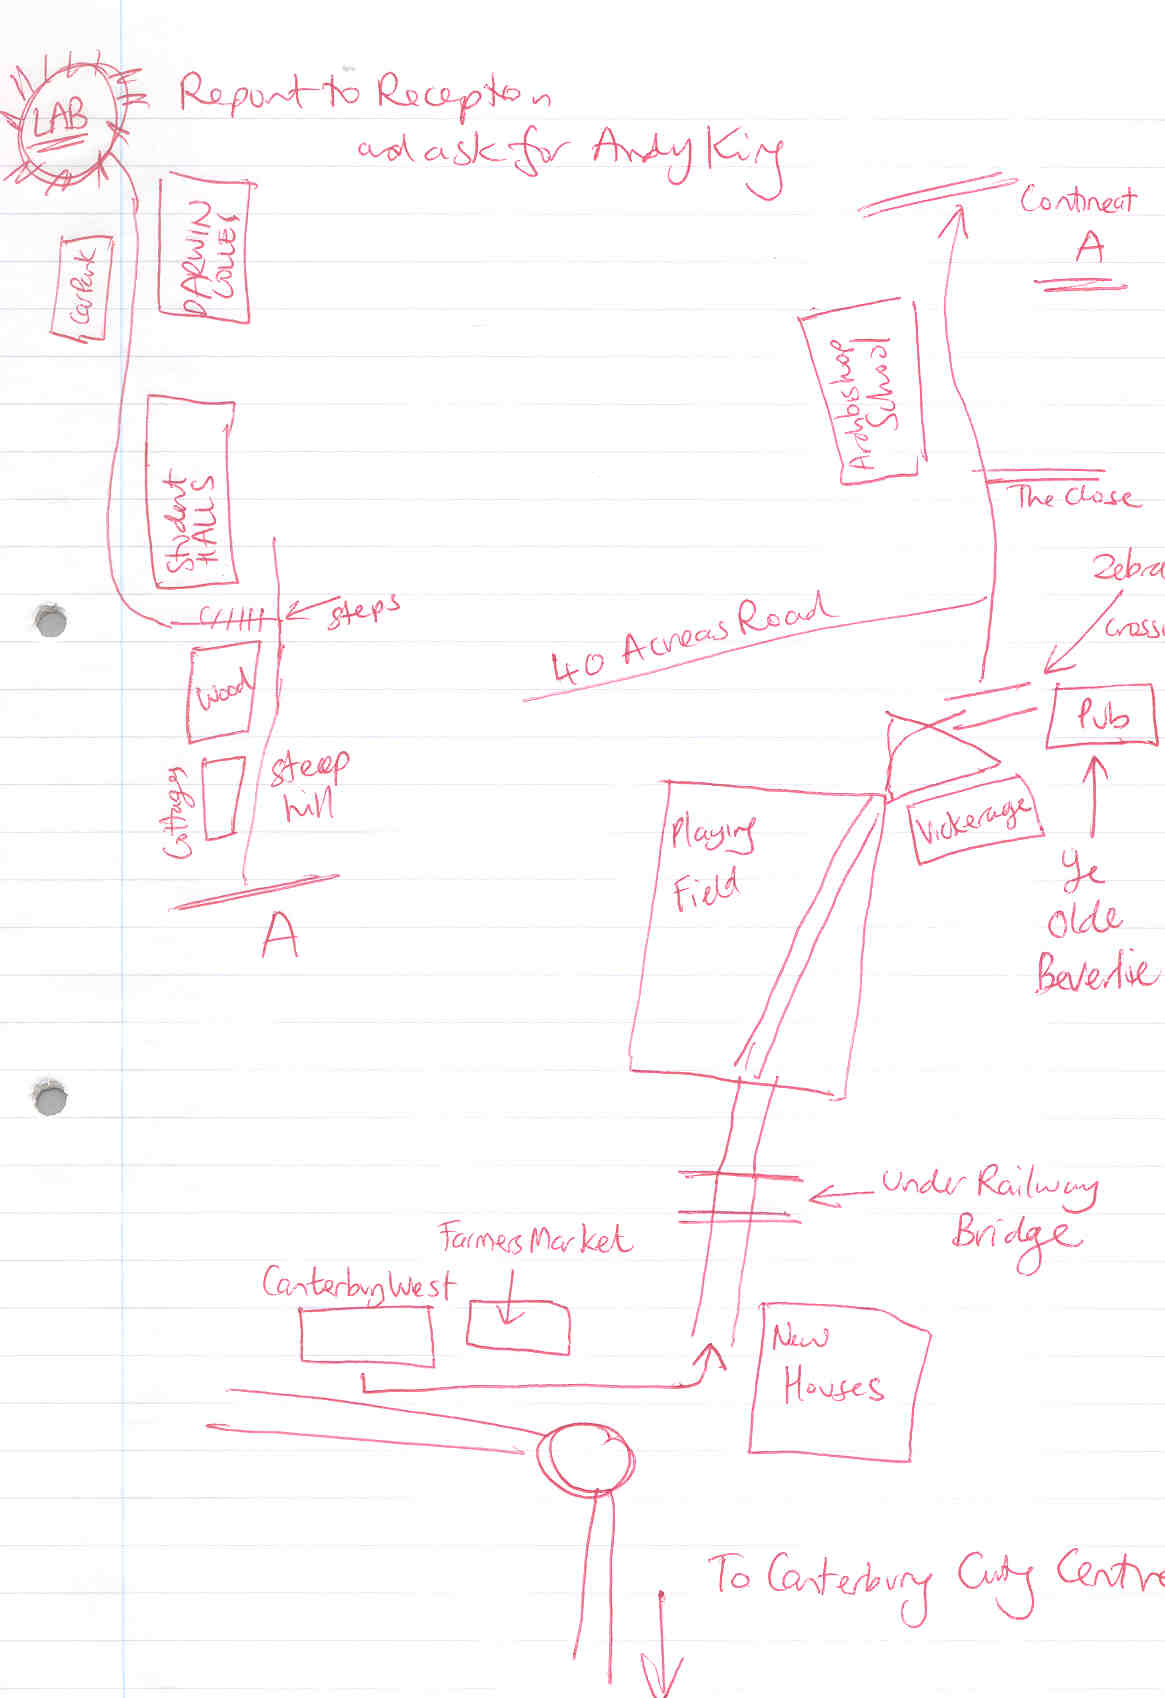 LAB
Report to Reception
and ask for Andy King
DARWIN
COLLEG
Car Park
Continent
A
Archbishop
School
The Close
Student
HALLS
Zebra
Cross
steps
40 Acreas Road
Wood
Pub
steep
hill
Cottages
Playing
Field
Vickerage
Ye
Olde
Beverlie
A
Under Railway
Bridge
Farmers Market
Canterbury West
New
Houses
To Canterbury City Centre